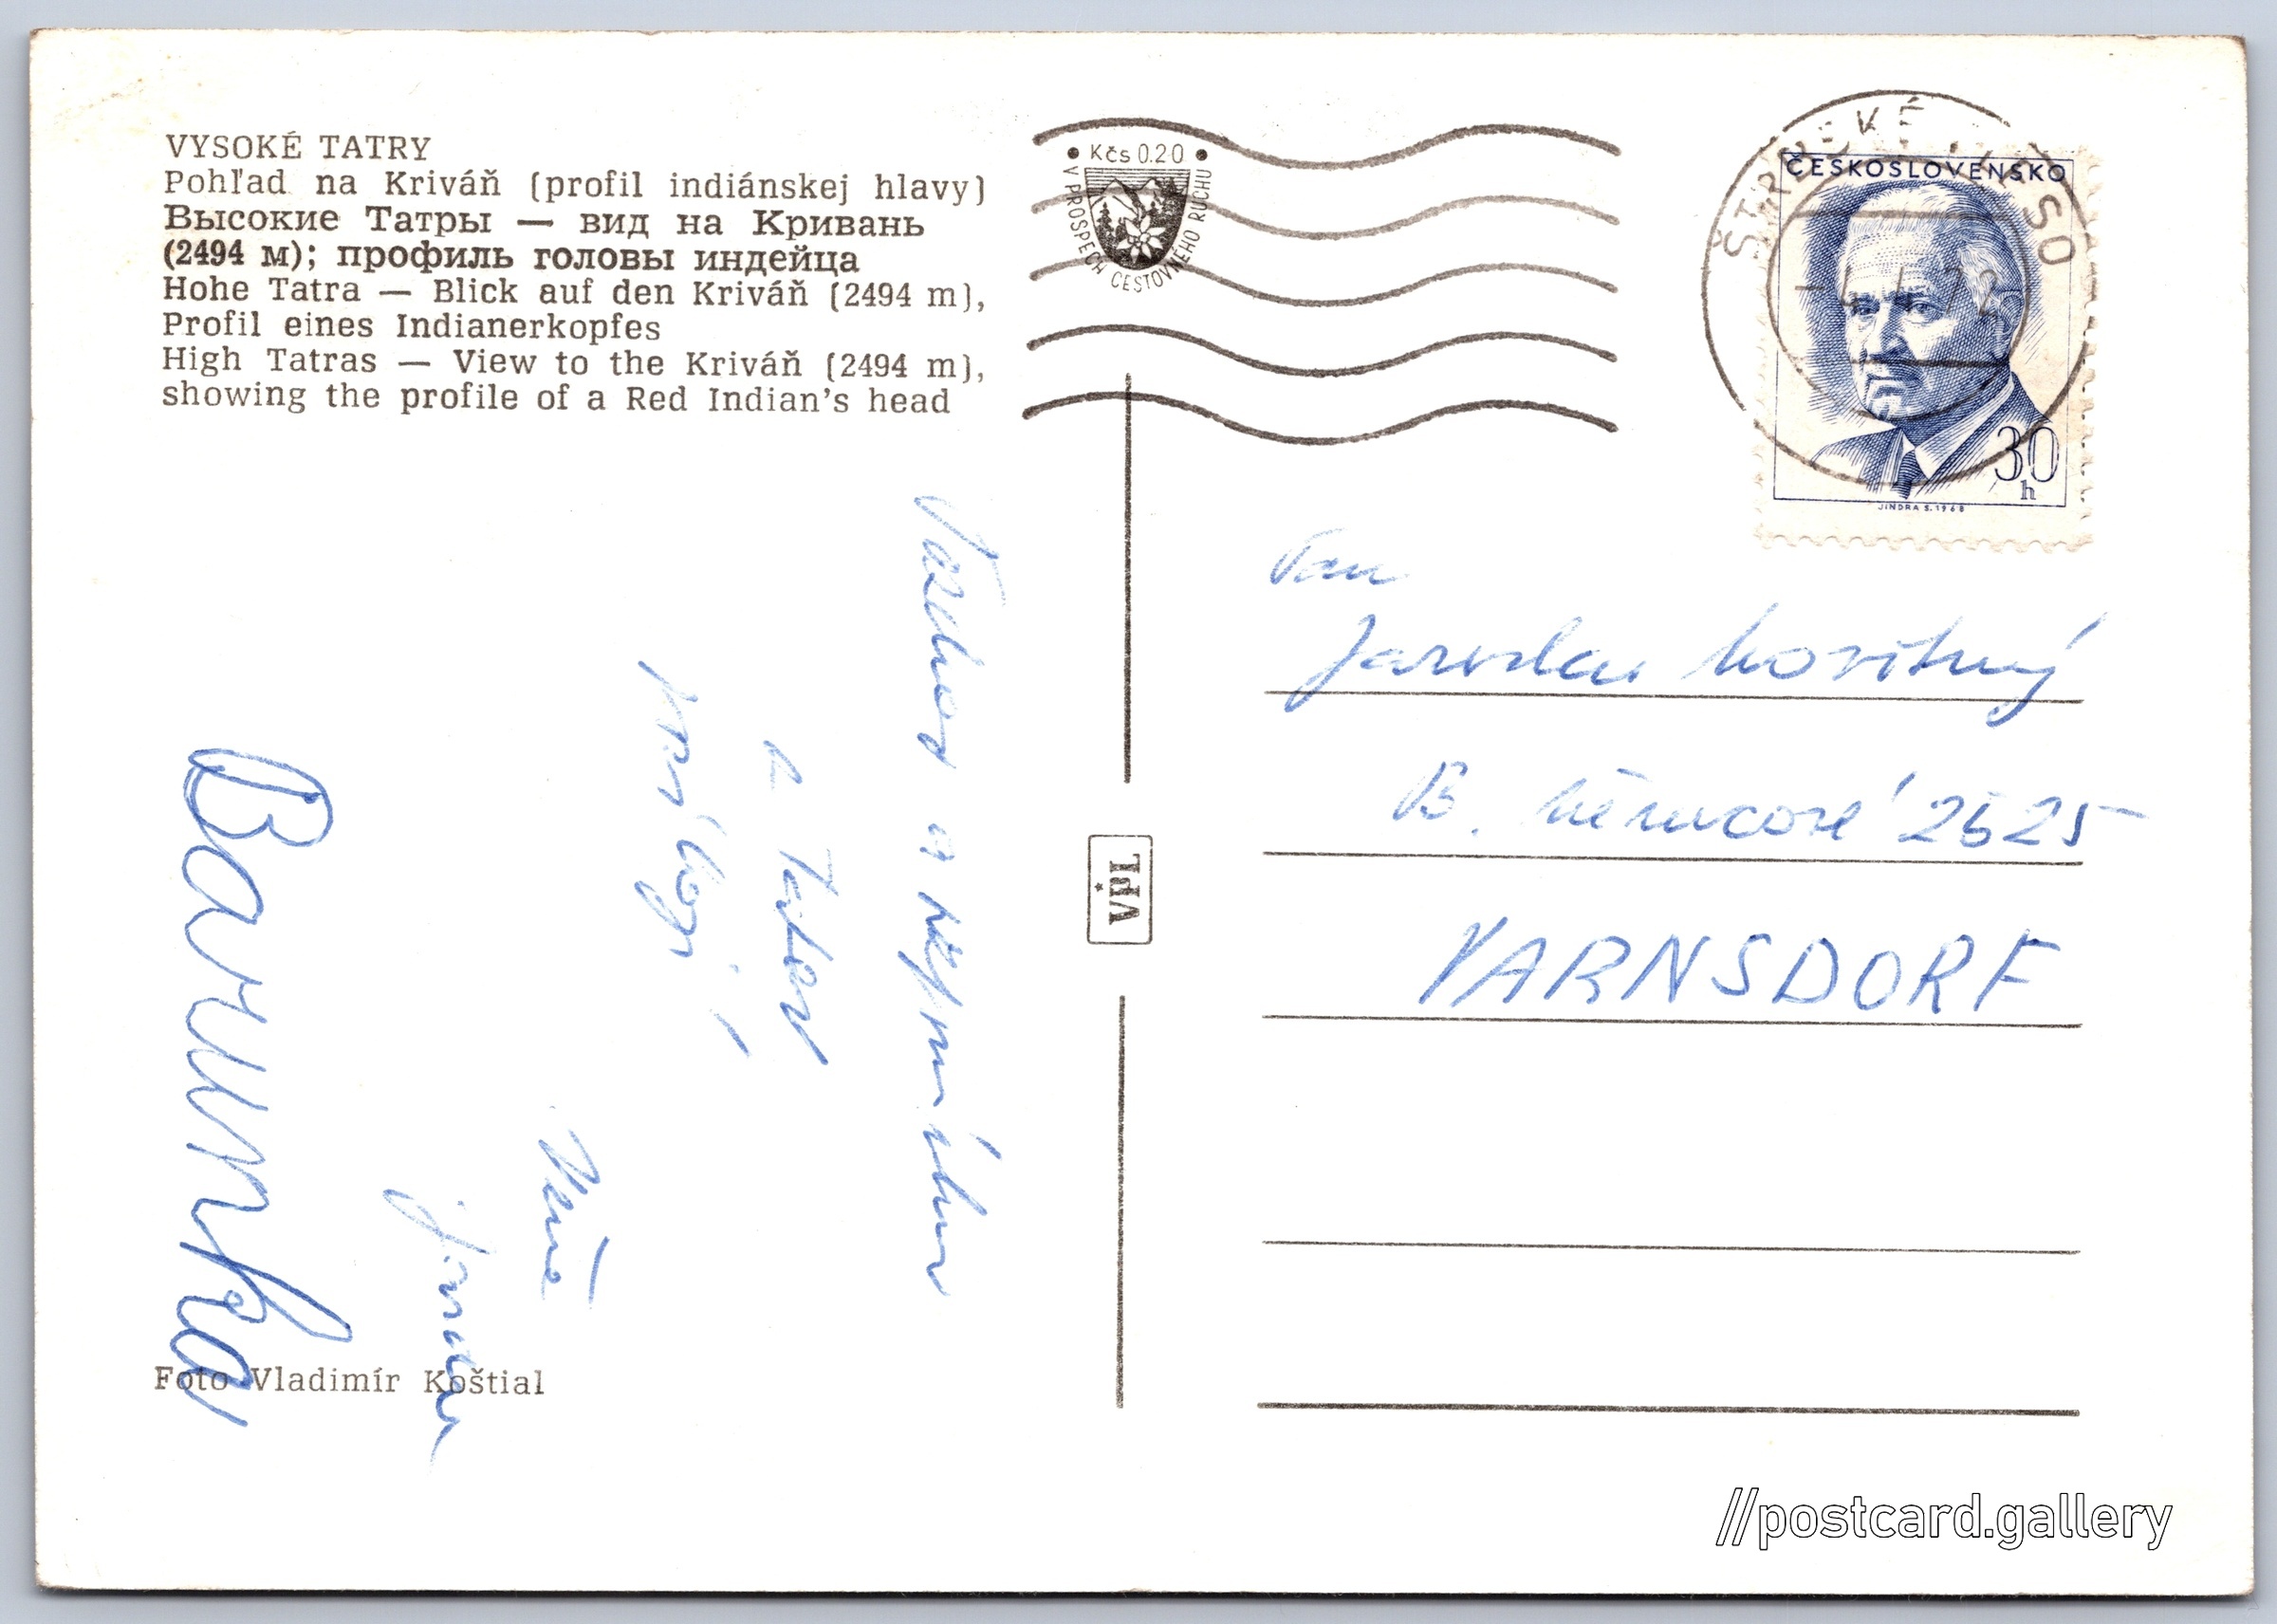 VYSOKÉ TATRY
Pohľad na Kriváň (profil indiánskej hlavy)
Высокие Татры — вид на Кривань
(2494 м); профиль головы индейца
Hohe Tatra — Blick auf den Kriváň (2494 m),
Profil eines Indianerkopfes
High Tatras — View to the Kriváň (2494 m),
showing the profile of a Red Indian's head
Kčs 0.20
V PROSPECH CESTOVNÉHO RUCHU
ŠTRBSKÉ PLESO
ČESKOSLOVENSKO
30
h
JINDRA S. 1968
Pan
Jaroslav
B. Němcové 2525
VARNSDORF
VPL
z Tater
Barunka
Foto Vladimír Koštial
//postcard.gallery